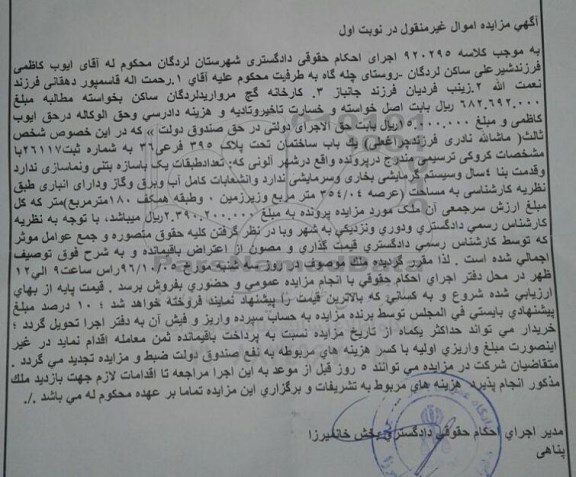 آگهي مزايده اموال غيرمنقول در نوبت اول
به موجب كلاسه ۹۲۰۲۹۵ اجرای احكام حقوقی دادگستری شهرستان لردگان محكوم له آقای ايوب كاظمی
فرزندشيرعلی ساكن لردگان -روستای چله گاه به طرفيت محكوم عليه آقاي ۱.رحمت اله قاسمپور دهقانی فرزند
نعمت الله ۲.زينب فرديان فرزند جانباز ۳. كارخانه گچ مرواريدلردگان ساكن بخواسته مطالبه مبلغ
۶۸۲.۶۹۲.۰۰۰ ريال بابت اصل خواسته و خسارت تاخيروتاديه و هزينه دادرسي وحق الوكاله درحق ايوب
كاظمی و مبلغ ۵.۰۰۰.۰۰۰ ريال بابت حق الاجرای دولتی در حق صندوق دولت » كه در اين خصوص شخص
ثالث( ماشالله نادری فرزندچراغعلی) يك باب ساختمان تحت پلاك ۳۹۵ فرعی۳۶ به شماره ثبت۲۶۱۱۷با
مشخصات كروكی ترسيمی مندرج درپرونده واقع درشهر آلونی كه: تعدادطبقات يك باسازه بتنی ونماسازی ندارد
وقدمت بنا ۴سال وسيستم گرمايشی بخاری وسرمايشی ندارد وانشعابات كامل آب وبرق وگاز ودارای انباری طبق
نظريه كارشناسی به مساحت (عرصه ۳۵۴/۰۴ متر مربع وزيرزمين ۰ وطبقه همكف ۱۸۰مترمربع)متر كه كل
مبلغ ارزش سرجمعی آن ملك مورد مزايده پرونده به مبلغ ۲.۳۹۰.۲۰۰.۰۰۰ريال ميباشد، با توجه به نظريه
كارشناس رسمي دادگستري ودوري ونزديكي به شهر وبا در نظر گرفتن كليه حقوق متصوره و جمع عوامل موثر
كه توسط كارشناس رسمي دادگستري قيمت گذاري و مصون از اعتراض باقيمانده و به شرح فوق توصيف
اجمالي شده است . لذا مقرر گرديده ملك موصوف در روز سه شنبه مورخ ۹۶/۱۰/۰۵راس ساعت۹ الي۱۲
ظهر در محل دفتر اجراي احكام حقوقي با انجام مزايده عمومي و حضوري بفروش برسد . قيمت پايه از بهاي
ارزيابي شده شروع و به كساني كه بالاترين قيمت را پيشنهاد نمايند فروخته خواهد شد ؛ ۱۰ درصد مبلغ
پيشنهادي بايستي في المجلس توسط برنده مزايده به حساب سپرده واريز و فيش آن به دفتر اجرا تحويل گردد ؛
خريدار مي تواند حداكثر يكماه از تاريخ مزايده نسبت به پرداخت باقيمانده ثمن معامله اقدام نمايد در غير
اينصورت مبلغ واريزي اوليه با كسر هزينه هاي مربوطه به نفع صندوق دولت ضبط و مزايده تجديد مي گردد .
متقاضيان شركت در مزايده مي توانند ۵ روز قبل از موعد به اين اجرا مراجعه تا اقدامات لازم جهت بازديد ملك
مذكور انجام پذيرد. هزينه هاي مربوط به تشريفات و برگزاري اين مزايده تماما بر عهده محكوم له مي باشد ./.
مدير اجراي احكام حقوقي دادگستري بخش خانميرزا
پناهی